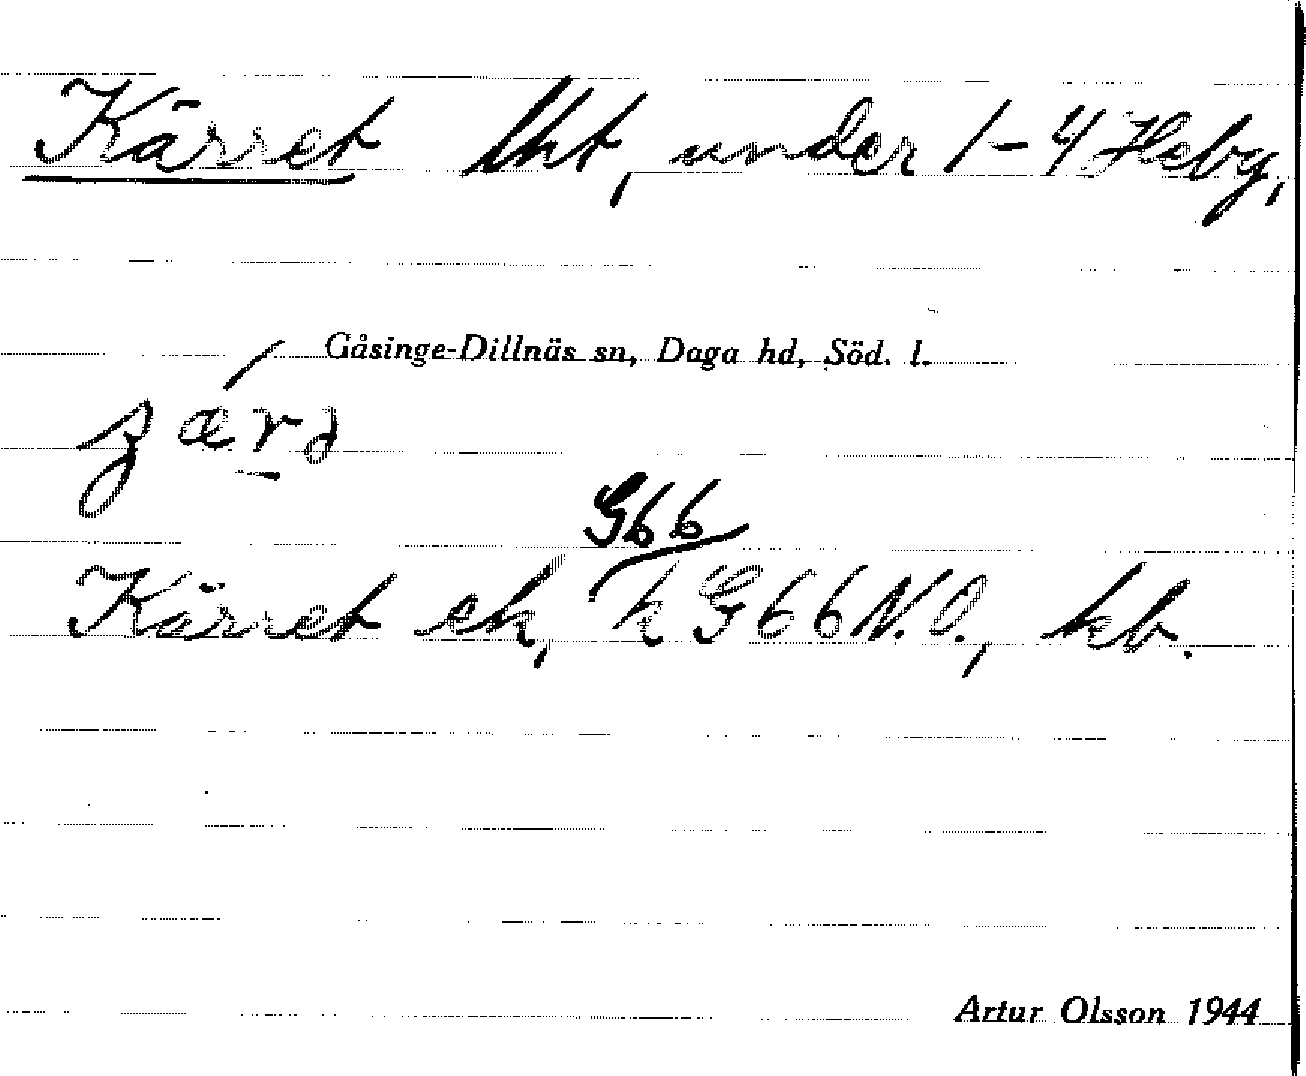 Kärret lht, under 1-4 Heby,
Gåsinge-Dillnäs sn, Daga hd, Söd. l.
G66
Kärret ek, k G66 N.O., kb.
Artur Olsson 1944